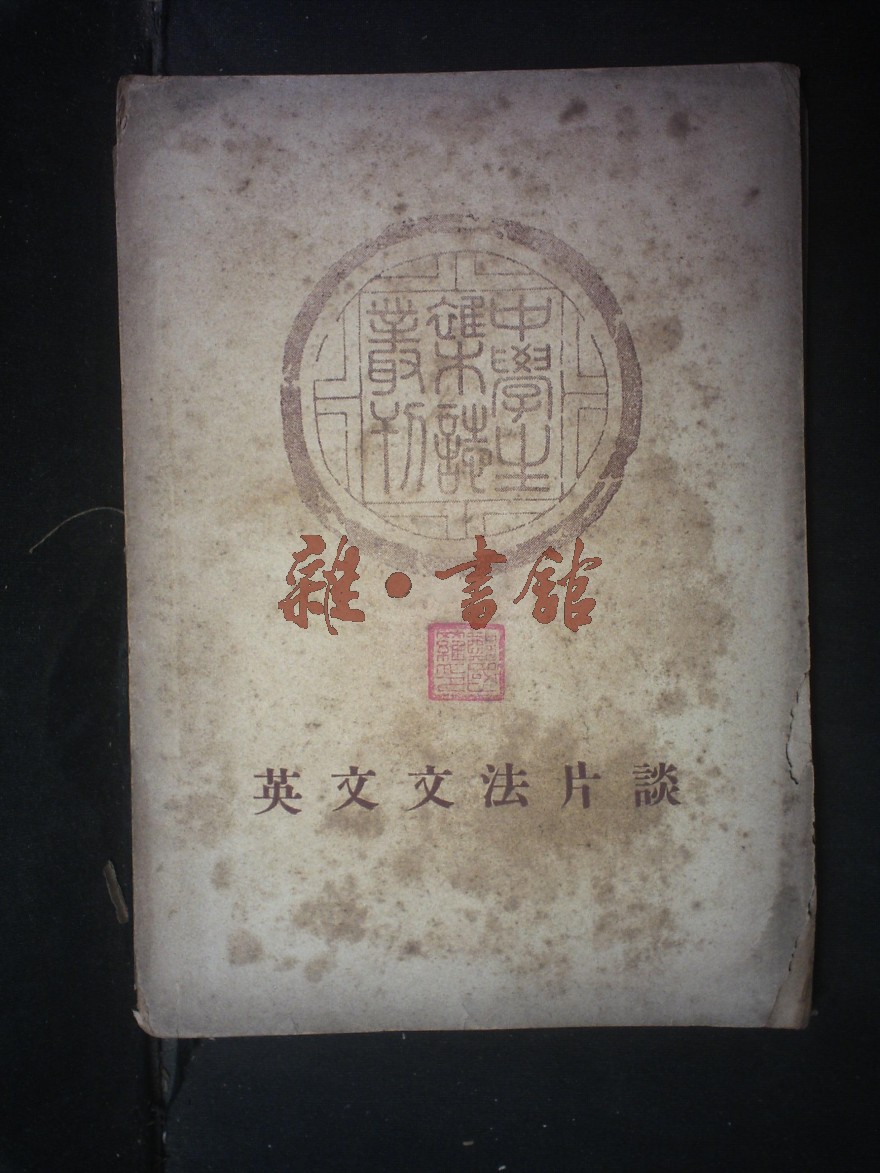 中學生
雜誌
叢刊
雜·書館
英文文法片談